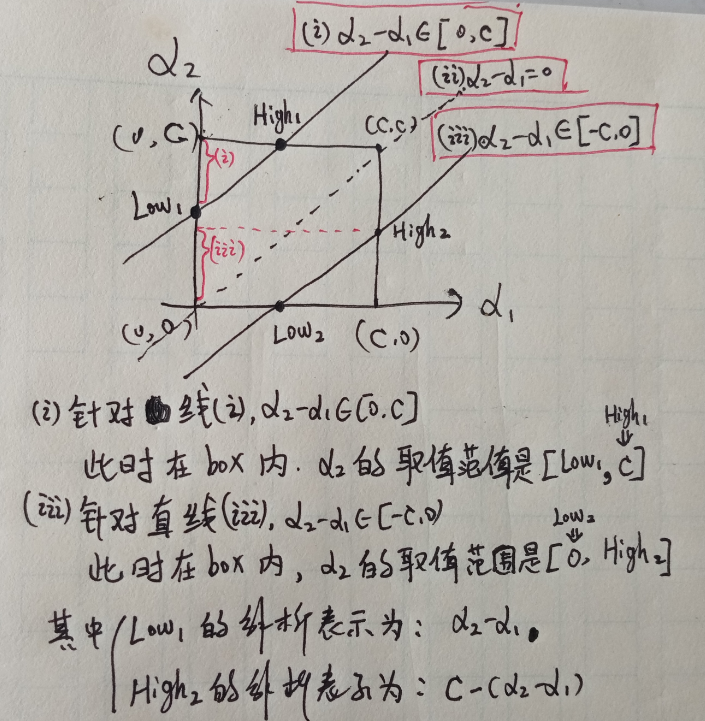 (i) α₂-α₁∈[0,C]
(ii) α₂-α₁=0
(iii) α₂-α₁∈[-C,0]
α₂
High₁
(0,C)
(C,C)
(i)
Low₁
(iii)
High₂
(0,0)
Low₂
(C,0)
α₁
(i) 针对 线(i), α₂-α₁∈[0,C]
High₁
⇓
此时在box内. α₂的取值范值是[Low₁, C]
(iii) 针对直线(iii), α₂-α₁∈[-C,0)
Low₂
⇓
此时在box内, α₂的取值范围是[0, High₂]
其中 Low₁的纵析表示为: α₂-α₁.
High₂的纵析表示为: C-(α₂-α₁)